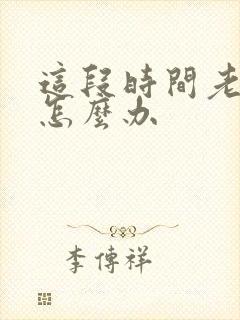 這段時間老
怎麼办
李傳祥